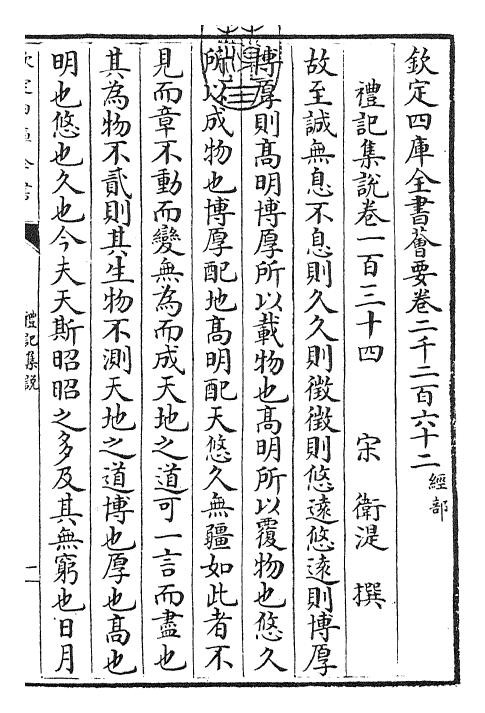 欽定四庫全書薈要卷二千二百六十二 經部
禮記集說卷一百三十四 宋 衛湜 撰
故至誠無息不息則久久則徵徵則悠遠悠遠則博厚
博厚則髙明博厚所以載物也髙明所以覆物也悠久
所以成物也博厚配地髙明配天悠久無疆如此者不
見而章不動而變無為而成天地之道可一言而盡也
其為物不貳則其生物不測天地之道博也厚也髙也
明也悠也久也今夫天斯昭昭之多及其無窮也日月
禮記集說
一